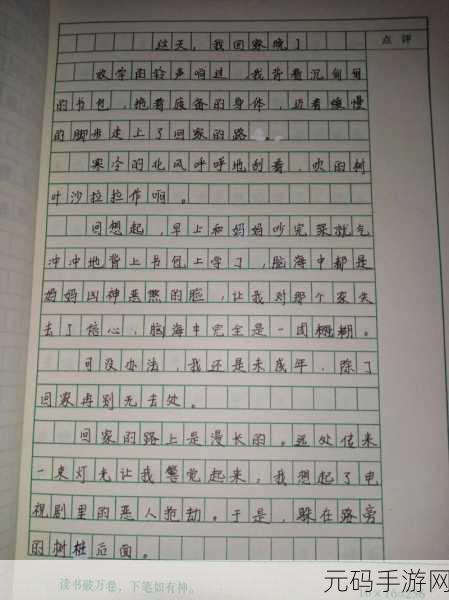 这天，我回家晚了
点评
放学的铃声响过，我背着沉甸甸
的书包，拖着疲备的身体，迈着缓慢
的脚步走上了回家的路。
寒冷的北风呼呼地刮着，吹的树
叶沙拉拉作响。
回想起，早上和妈妈吵完架就气
冲冲地背上书包上学了，脑海中都是
妈妈凶神恶煞的脸，让我对那个家失
去了信心，脑海中完全是一团模糊。
可没办法，我还是未成年，除了
回家再别无去处。
回家的路上是漫长的。远处传来
一束灯光让我警觉起来，我想起了电
视剧里的恶人抢劫。于是，躲在路旁
的树桩后面。
读书破万卷，下笔如有神。
元码手游网